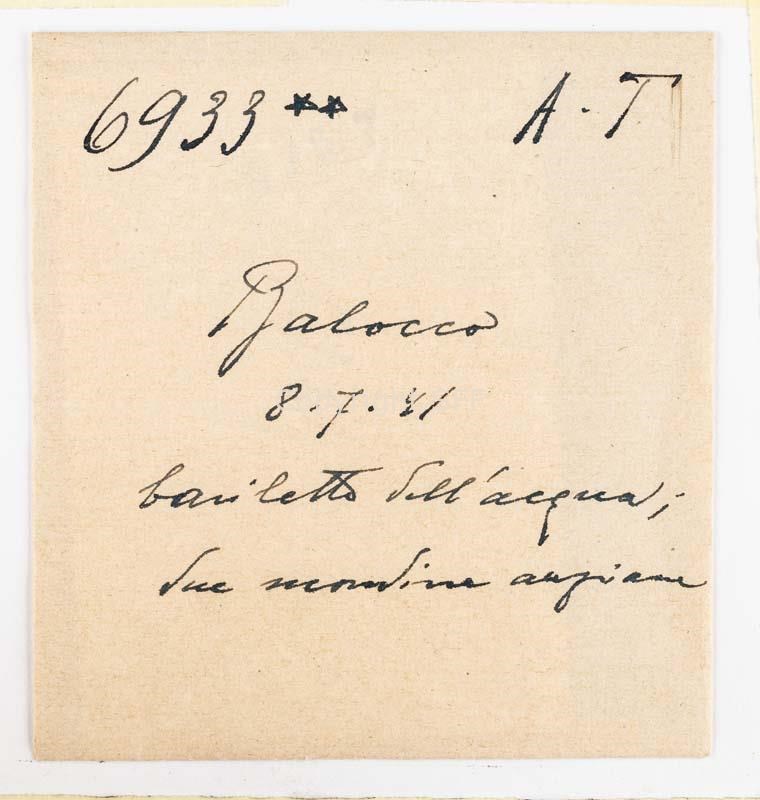 6933 ** A - T
Balocco
8 . 7 . 41
bariletto dell'acqua;
due mondine anziane